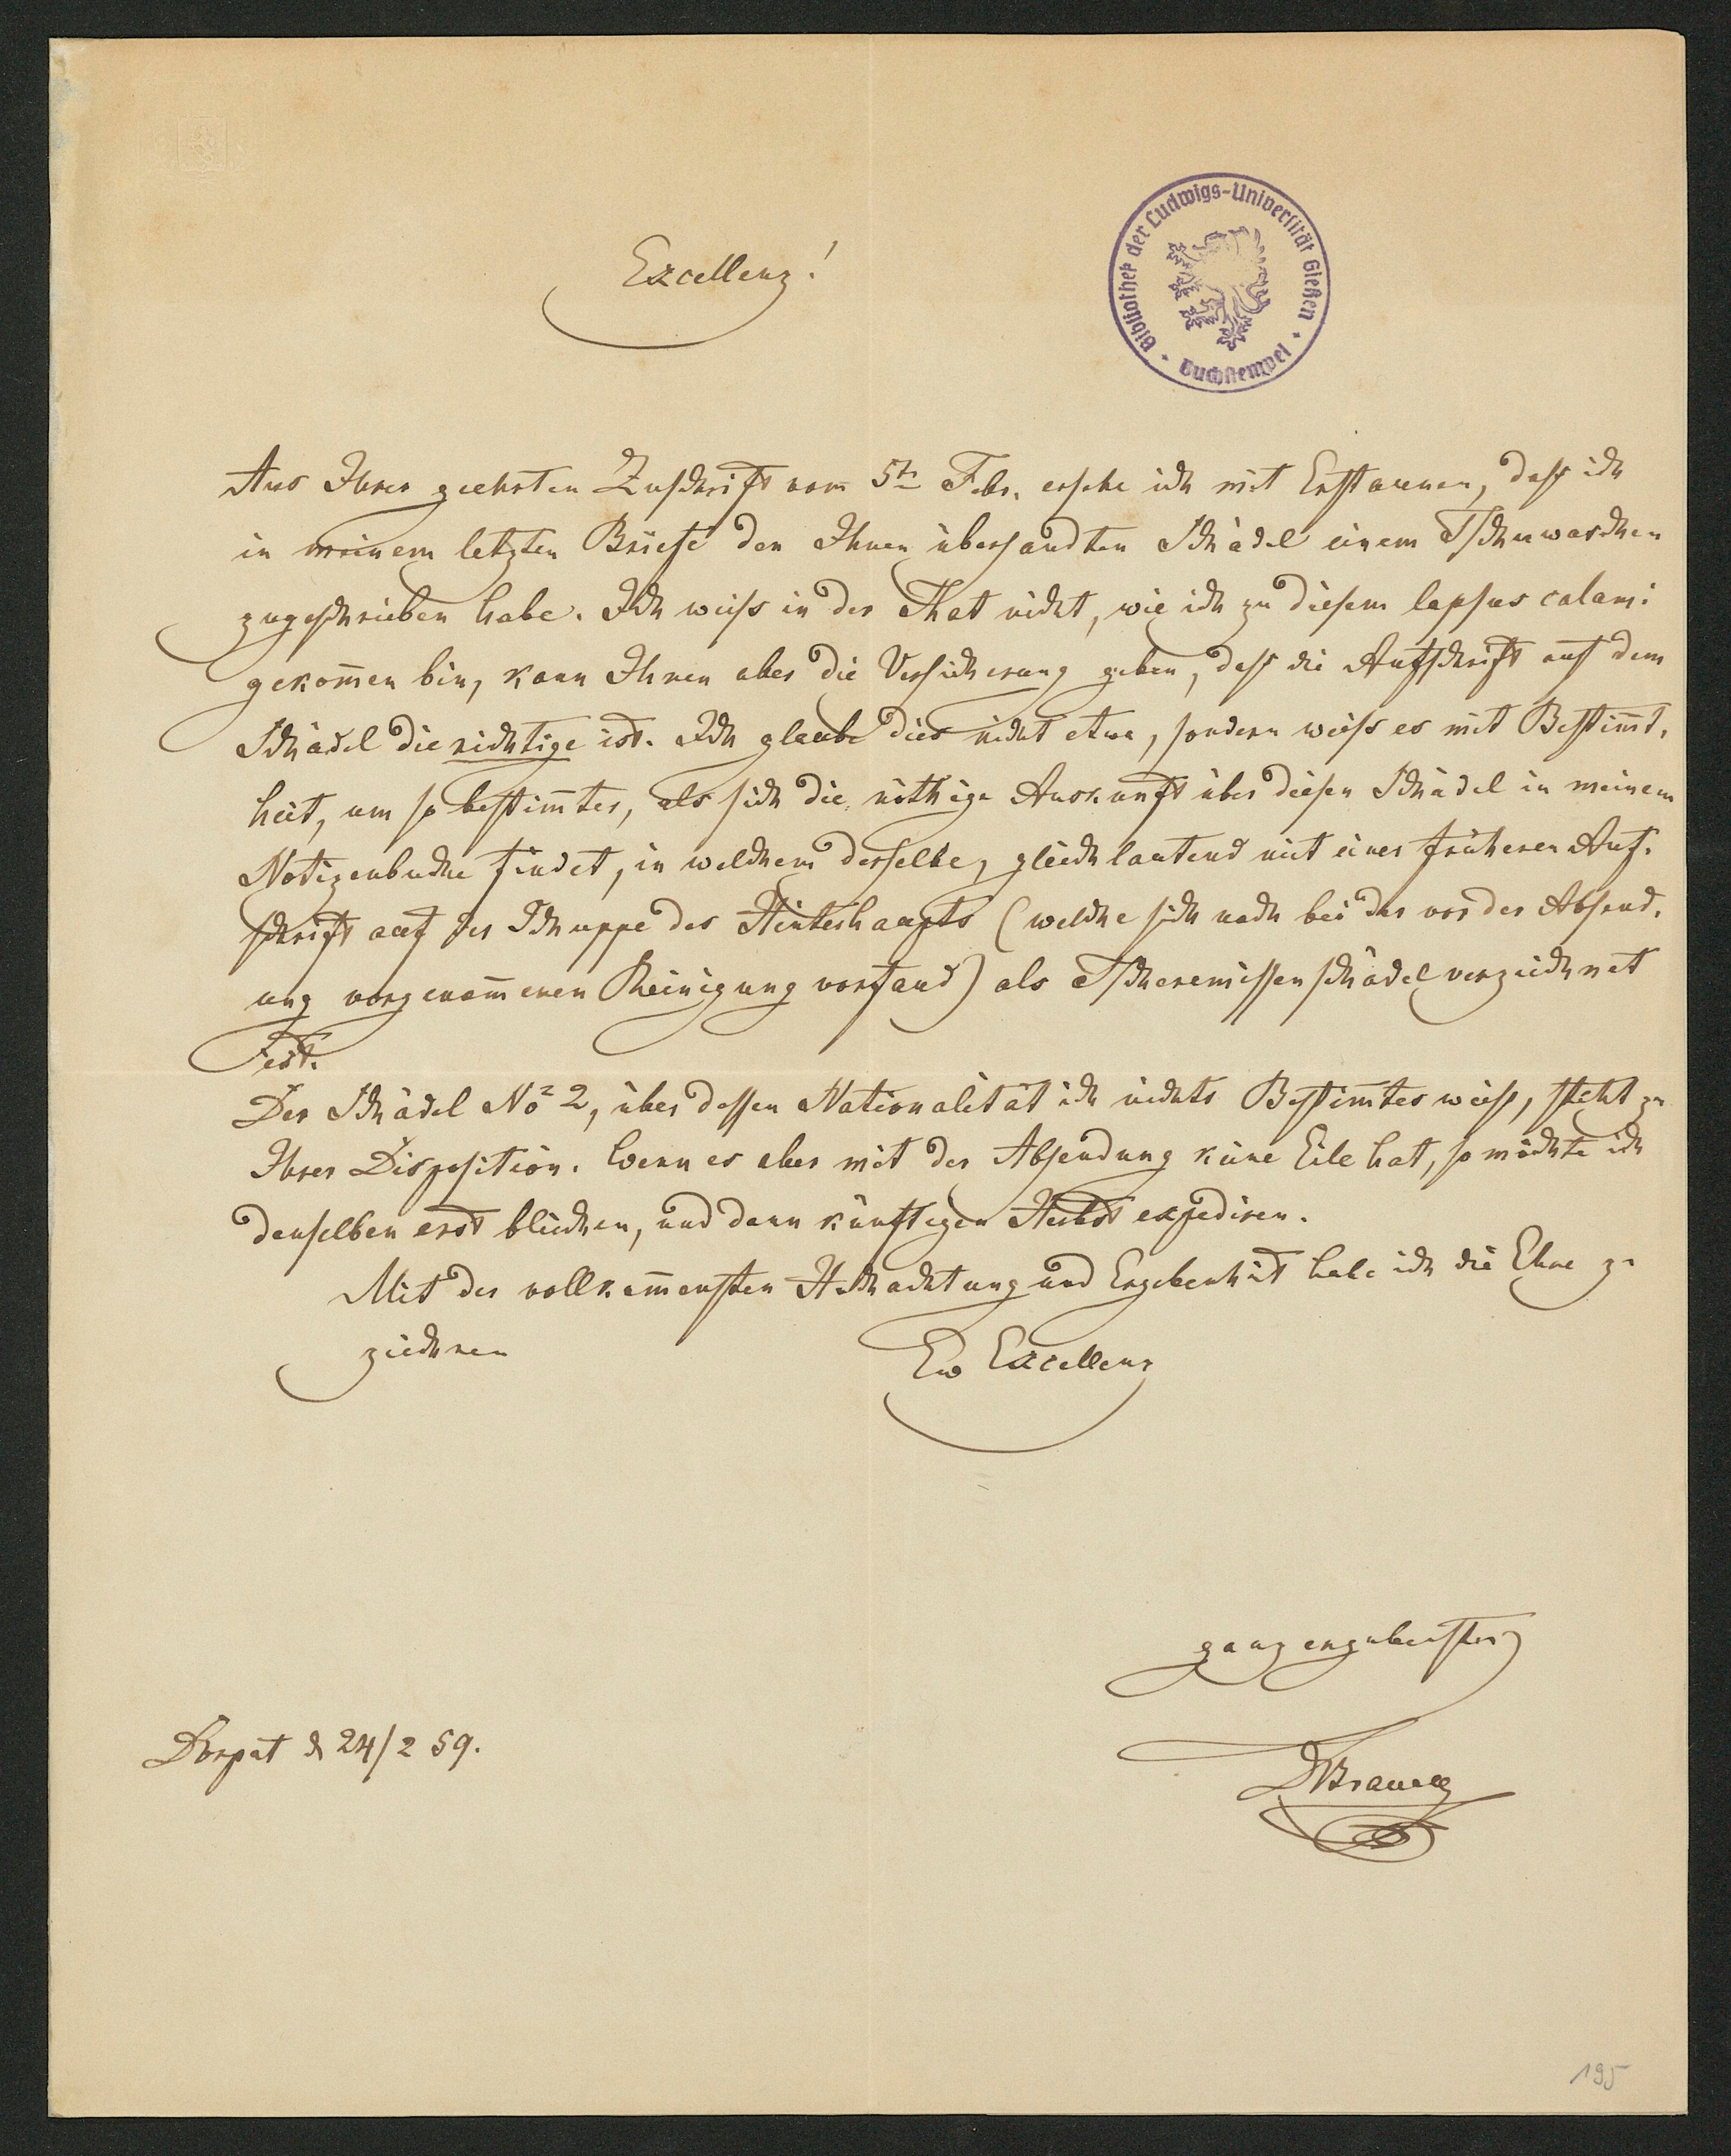 Excellenz!
Bibliothek der Ludwigs-Universität Gießen
Buchstempel
Aus Ihrer geehrten Zuschrift vom 5tn Febr. ersehe ich mit Erstaunen, dass ich
in meinem letzten Briefe den Ihnen übersandten Schädel einem Tschuwaschen
zugeschrieben habe. Ich weiss in der That nicht, wie ich zu diesem lapsus calami
gekom̄en bin, kann Ihnen aber die Versicherung geben, dass die Aufschrift auf dem
Schädel die richtige ist. Ich glaube dies nicht etwa, sondern weiss es mit Bestim̄t,
heit, um so bestim̄ter, als sich die nöthige Auskunft über diesen Schädel in meinem
Notizenbuche findet, in welchem derselbe, gleich lautend mit einer früheren Auf,
schrift auf der Schuppe des Hinterhaupts (welche sich noch bei der vor der Absend,
ung vorgenom̄enen Reinigung vorfand) als Tscheremissenschädel verzeichnet
ist.
Der Schädel No 2, über dessen Nationalität ich nichts Bestim̄tes weiss, steht zu
Ihrer Disposition. Wenn es aber mit der Absendung keine Eile hat, so möchte ich
denselben erst bleichen, und dann künftigen Herbst expediren.
Mit der vollkom̄ensten Hochachtung und Ergebenheit habe ich die Ehre zu
zeichnen
Ew Excellenz
ganz ergebenster
Dorpat d 24/2 59.
Brauell
195